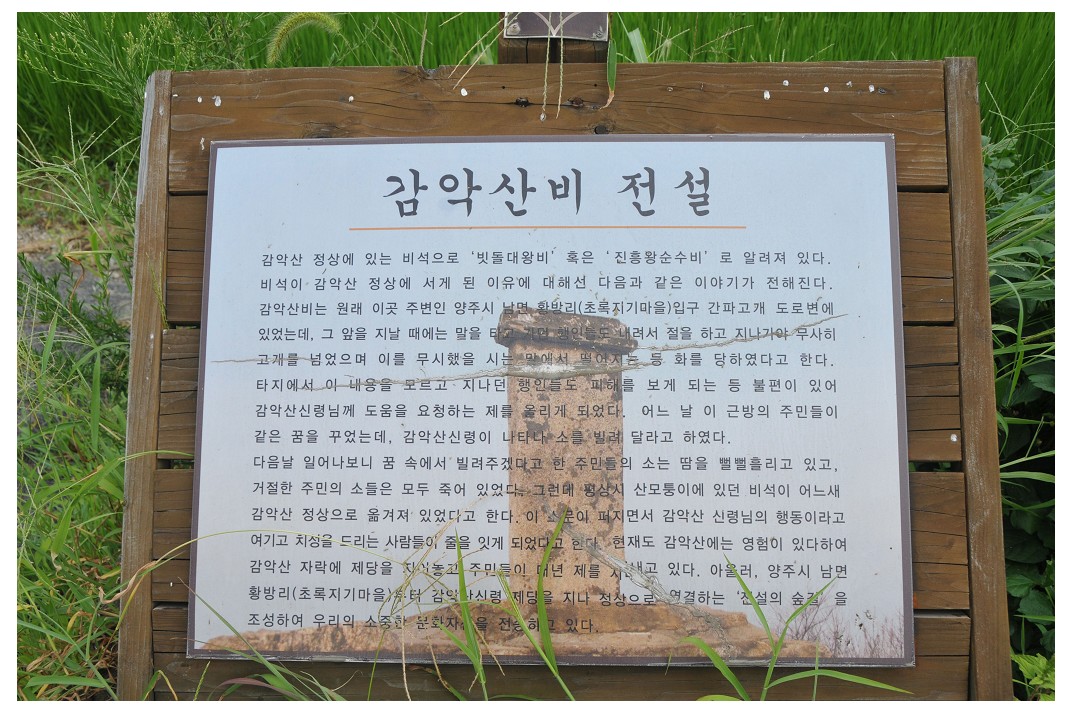 감악산비 전설
감악산 정상에 있는 비석으로 '빗돌대왕비' 혹은 '진흥황순수비' 로 알려져 있다.
비석이 감악산 정상에 서게 된 이유에 대해선 다음과 같은 이야기가 전해진다.
감악산비는 원래 이곳 주변인 양주시 남면 황방리(초록지기마을)입구 간파고개 도로변에
있었는데, 그 앞을 지날 때에는 말을 타고 가던 행인들도 내려서 절을 하고 지나가야 무사히
고개를 넘었으며 이를 무시했을 시는 말에서 떨어지는 등 화를 당하였다고 한다.
타지에서 이 내용을 모르고 지나던 행인들도 피해를 보게 되는 등 불편이 있어
감악산신령님께 도움을 요청하는 제를 올리게 되었다. 어느 날 이 근방의 주민들이
같은 꿈을 꾸었는데, 감악산신령이 나타나 소를 빌려 달라고 하였다.
다음날 일어나보니 꿈 속에서 빌려주겠다고 한 주민들의 소는 땀을 뻘뻘흘리고 있고,
거절한 주민의 소들은 모두 죽어 있었다. 그런데 평상시 산모퉁이에 있던 비석이 어느새
감악산 정상으로 옮겨져 있었다고 한다. 이 소문이 퍼지면서 감악산 신령님의 행동이라고
여기고 치성을 드리는 사람들이 줄을 잇게 되었다고 한다. 현재도 감악산에는 영험이 있다하여
감악산 자락에 제당을 지어놓고 주민들이 매년 제를 지내고 있다. 아울러, 양주시 남면
황방리(초록지기마을)부터 감악산신령 제당을 지나 정상으로 연결하는 '전설의 숲길' 을
조성하여 우리의 소중한 문화자산을 전승하고 있다.